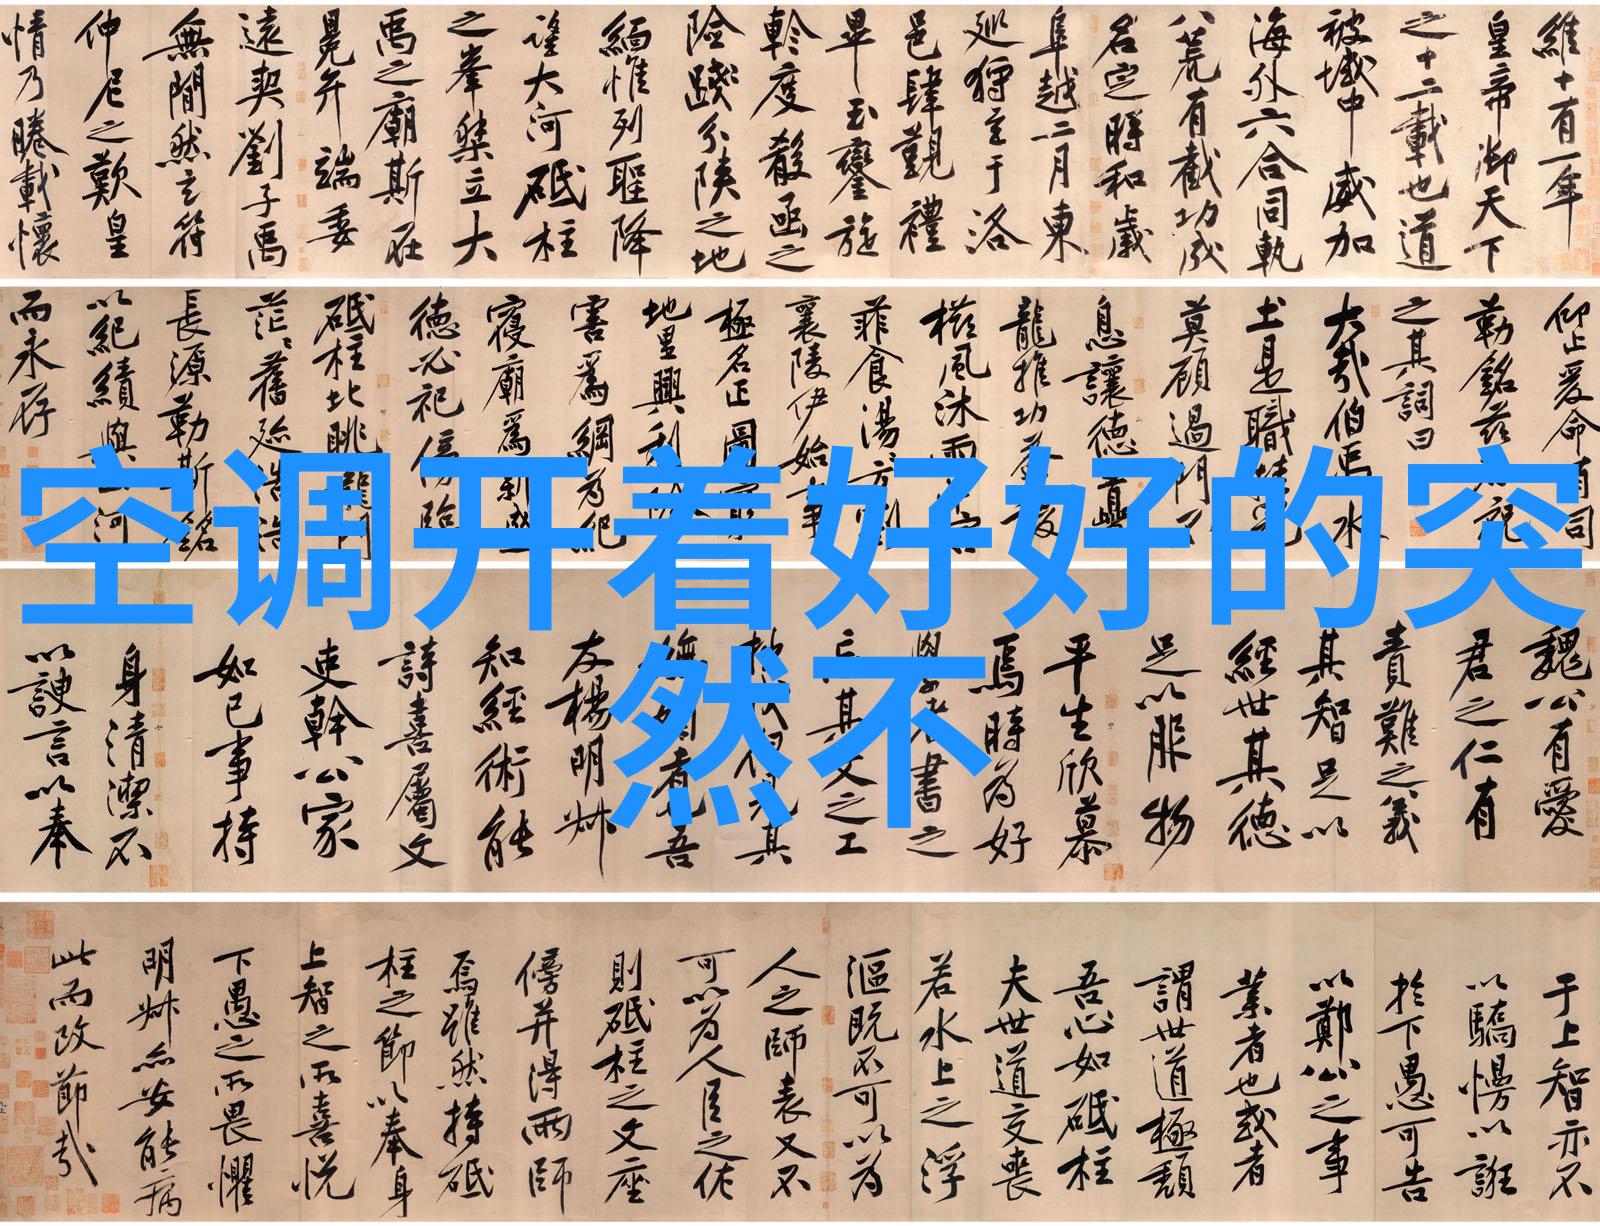 空调开着好好的突
然不
維十有一年
皇帝御天下
之十二載也道
被域中威加
海外六合同軌
八荒有截功成
名定時和歲
阜越二月東
巡狩至于洛
邑肆覲禮
畢玉鑾旋
軫度殽函之
險踐分陝之地
緬惟列聖降
望大河砥柱
之峯桀立大
禹之廟斯在
冕弁端委
遠契劉子禹
無閒然玄符
仲尼之歎皇
情乃睠載懷
仰止爰命有司
勒銘茲
之其詞曰
大哉伯禹水
土是職
莫顧過門不
息讓德夔
龍推功益稷
櫛風沐雨
菲食湯方割
襄陵伊始事
極名正圖
地里興利
害為綱為紀
寢廟為新盛
德必祀傍臨
砥柱北眺龍門
茫茫舊迹浩浩
長源勒斯銘
以紀績與山河
而永存
魏公有愛
君之仁有
責難之義
其智足以
經世其德
足以服物
平生欣慕
焉時為好
學者書之
忘其文之工
拙我但見其
嫵媚者也吾
友楊明叔
知經術能
詩喜屬文
吏幹公家
如己事持
身清潔不
以諛言以奉
于上智亦不
以驕慢以誑
於下愚可告
以鄭公之事
業者也或者
謂世道極頹
吾心如砥柱
夫世道交喪
若水上之浮
漚既不可以為
人之師表又不
可以為人臣之佐
則砥柱之文座
傍并得兩師
焉雖然持砥
柱之節以奉身
上智之所喜悅
下愚之所畏懼
明叔亦安能病
此而改節哉